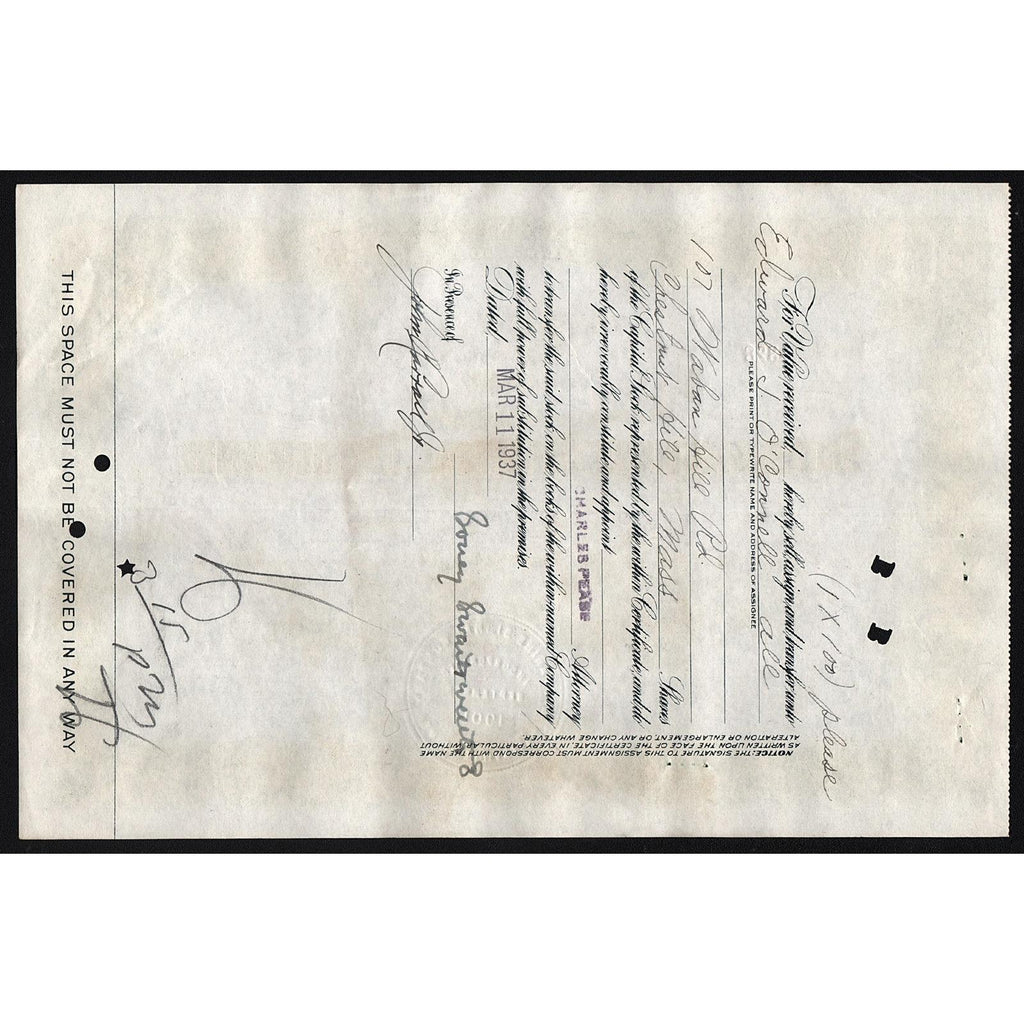 (1 X 100) please
B B
For Value received, hereby sell, assign, and transfer unto
Edward J O'Connell all
PLEASE PRINT OR TYPEWRITE NAME AND ADDRESS OF ASSIGNEE
107 Waban Hill Rd.
Chestnut Hill, Mass Shares
of the Capital Stock represented by the within Certificate, and do
hereby irrevocably constitute and appoint
CHARLES PEASE
Attorney
to transfer the said stock on the books of the within-named Company
with full power of substitution in the premises.
Dated, MAR 11 1937
In Presence of
NOTICE: THE SIGNATURE TO THIS ASSIGNMENT MUST CORRESPOND WITH THE NAME
AS WRITTEN UPON THE FACE OF THE CERTIFICATE, IN EVERY PARTICULAR, WITHOUT
ALTERATION OR ENLARGEMENT, OR ANY CHANGE WHATEVER.
THIS SPACE MUST NOT BE COVERED IN ANY WAY